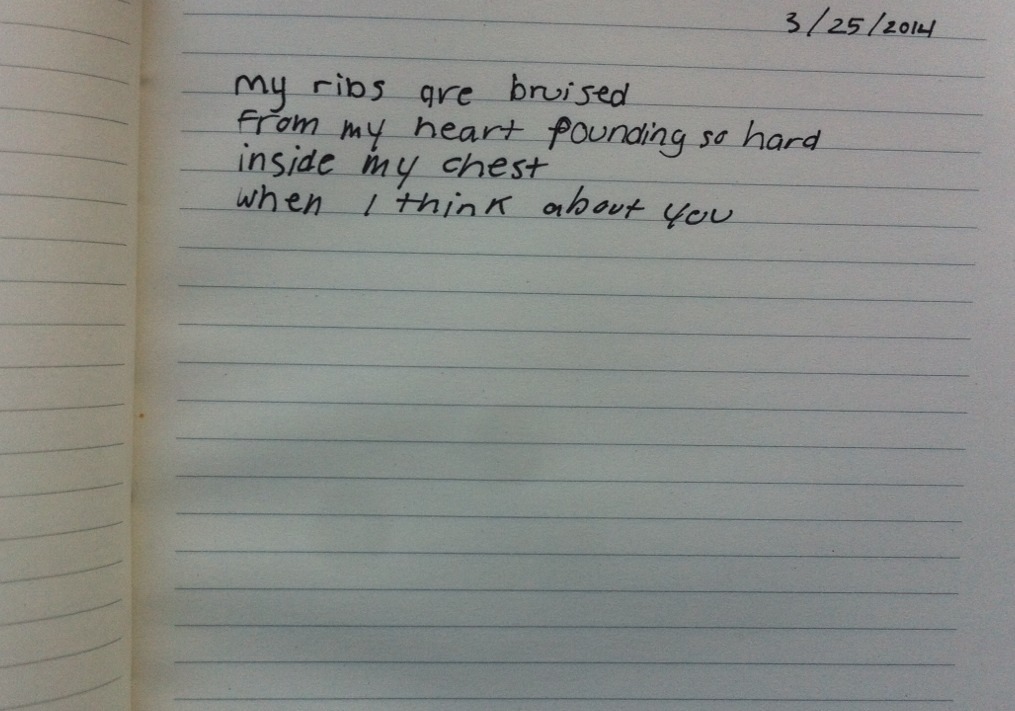 3/25/2014
my ribs are bruised
from my heart pounding so hard
inside my chest
when I think about you